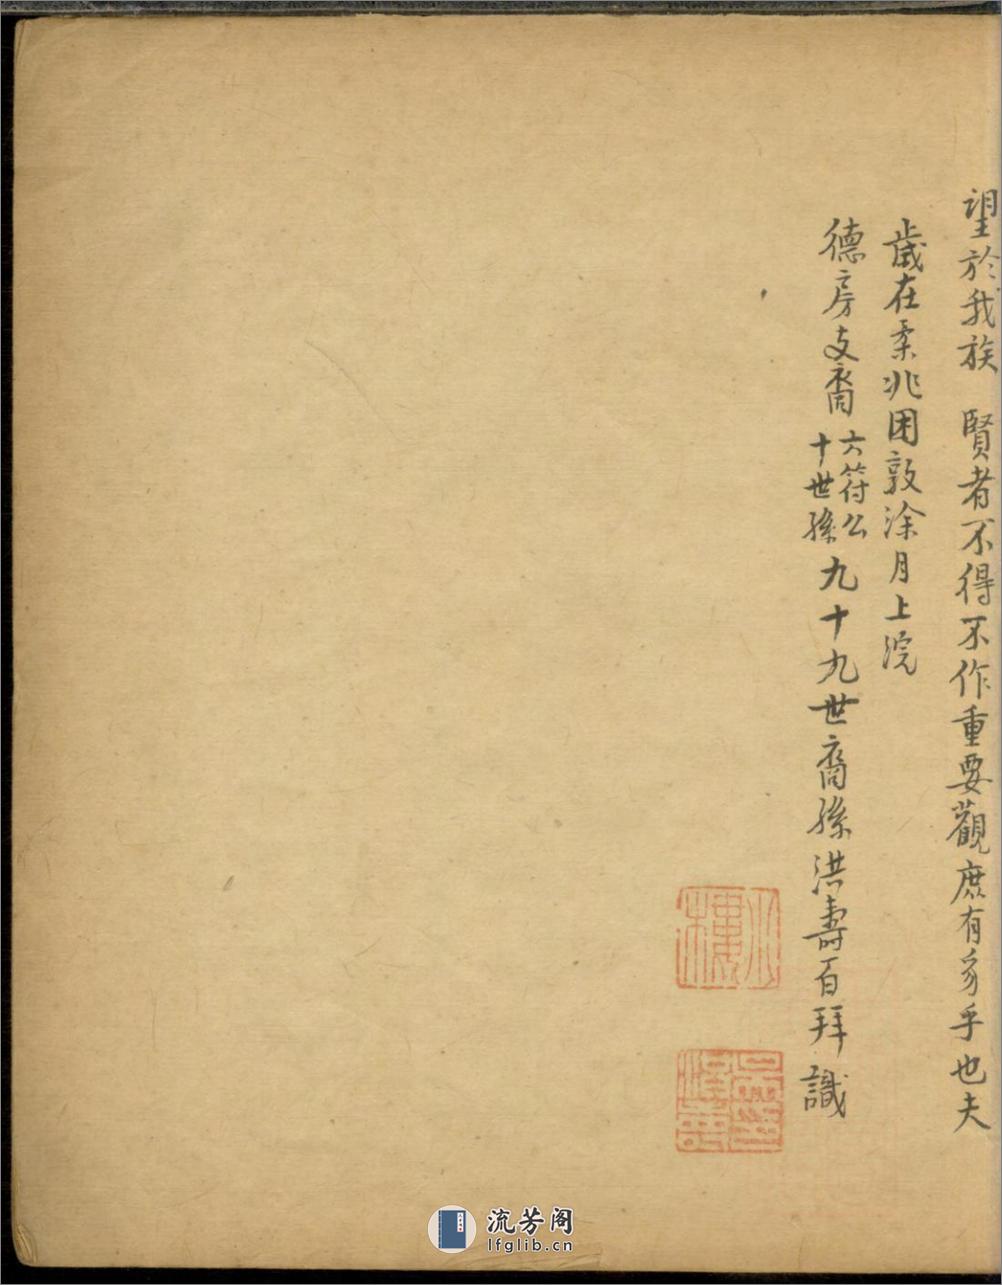 望於我族　賢者不得不作重要觀庶有豸乎也夫
歲在柔兆困敦涂月上浣
德房支裔六符公十世孫九十九世裔孫洪壽百拜識
流芳阁
lfglib.cn